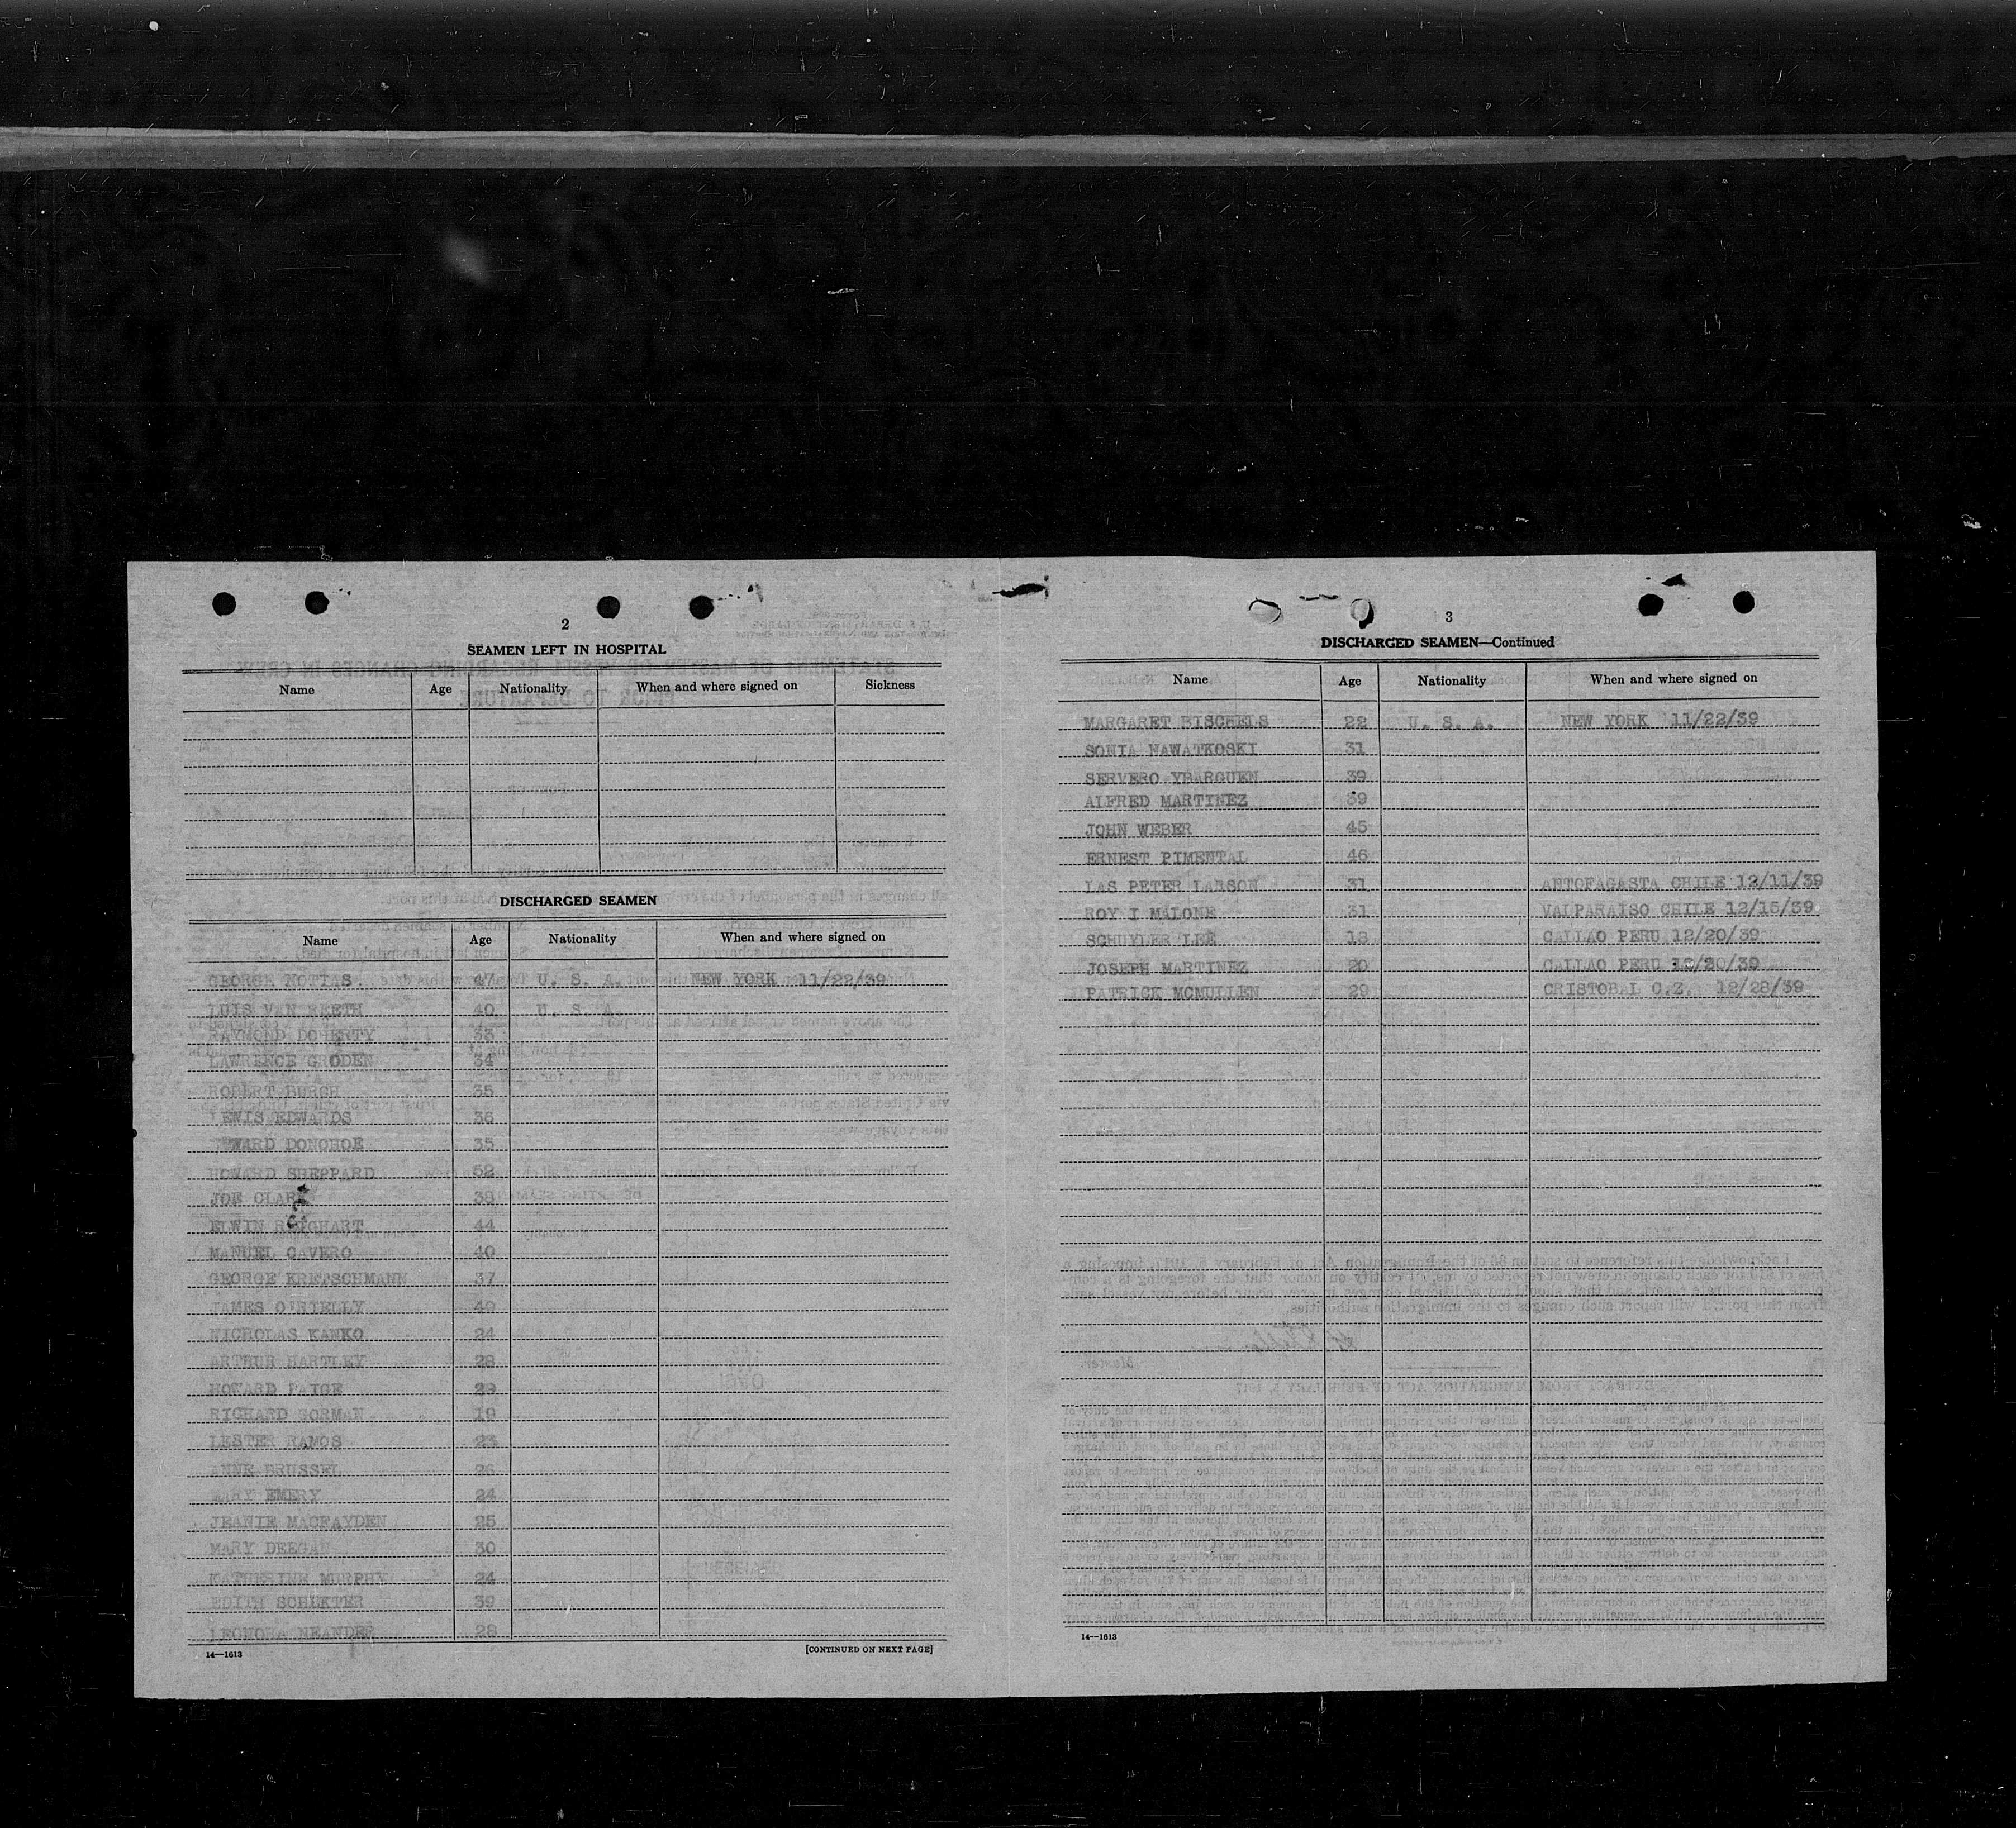 2
SEAMEN LEFT IN HOSPITAL
Name Age Nationality When and where signed on Sickness
DISCHARGED SEAMEN
Name Age Nationality When and where signed on
GEORGE KOTTAS 47 U. S. A. NEW YORK 11/22/39
LUIS VAN REETH 40 U. S. A.
RAYMOND DOHERTY 33
LAWRENCE GRODEN 34
ROBERT BURCH 35
LEWIS EDWARDS 36
DONOHOE 35
HOWARD SHEPPARD 52
JOE CLARK 38
ELWIN 44
MANUEL CAVERO 40
GEORGE KRETSCHMANN 37
JAMES O'RIELLY 40
NICHOLAS KANKO 24
ARTHUR HARTLEY 28
HOWARD PAIGE 29
RICHARD GORMAN 19
LESTER RAMOS 23
ANNE BRUSSEL 26
MARY EMERY 24
JEANIE MACFAYDEN 25
MARY DEEGAN 30
KATHERINE MURPHY 24
EDITH SCHLKTER 39
LEONORA NEANDER 28
14—1613 [CONTINUED ON NEXT PAGE]
3
DISCHARGED SEAMEN—Continued
Name Age Nationality When and where signed on
MARGARET BISCHELS 22 U. S. A. NEW YORK 11/22/39
SONIA NAWATKOSKI 31
SERVERO YBARGUEN 39
ALFRED MARTINEZ 39
JOHN WEBER 45
ERNEST PIMENTAL 46
LAS PETER LARSON 31 ANTOFAGASTA CHILE 12/11/39
ROY I MALONE 31 VALPARAISO CHILE 12/15/39
SCHUYLER LEE 18 CALLAO PERU 12/20/39
JOSEPH MARTINEZ 20 CALLAO PERU 12/20/39
PATRICK MCMULLEN 29 CRISTOBAL C.Z. 12/28/39
14—1613